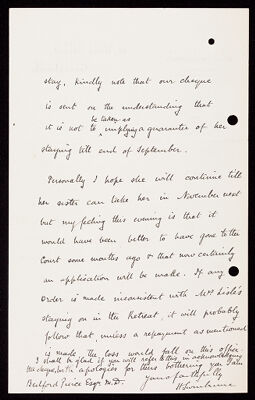 stay. Kindly note that our cheque
is sent on the understanding that
be taken as
it is not to implying a guarantee of her
staying till end of September.
Personally I hope she will continue till
her sister can take her in November next
but my feeling this coming is that it
would have been better to have gone to the
Court some months ago & that now certainly
an application will be made. If any
order is made inconsistent with Mrs Lisle's
staying on in the Retreat, it will probably
follow that, unless a repayment as mentioned
is made, the loss would fall on this office.
I shall be glad if you will refer to this in acknowledging
the cheque. With apologies for thus bothering you I am
Bedford Pierce Esqr M.D. Yours faithfully